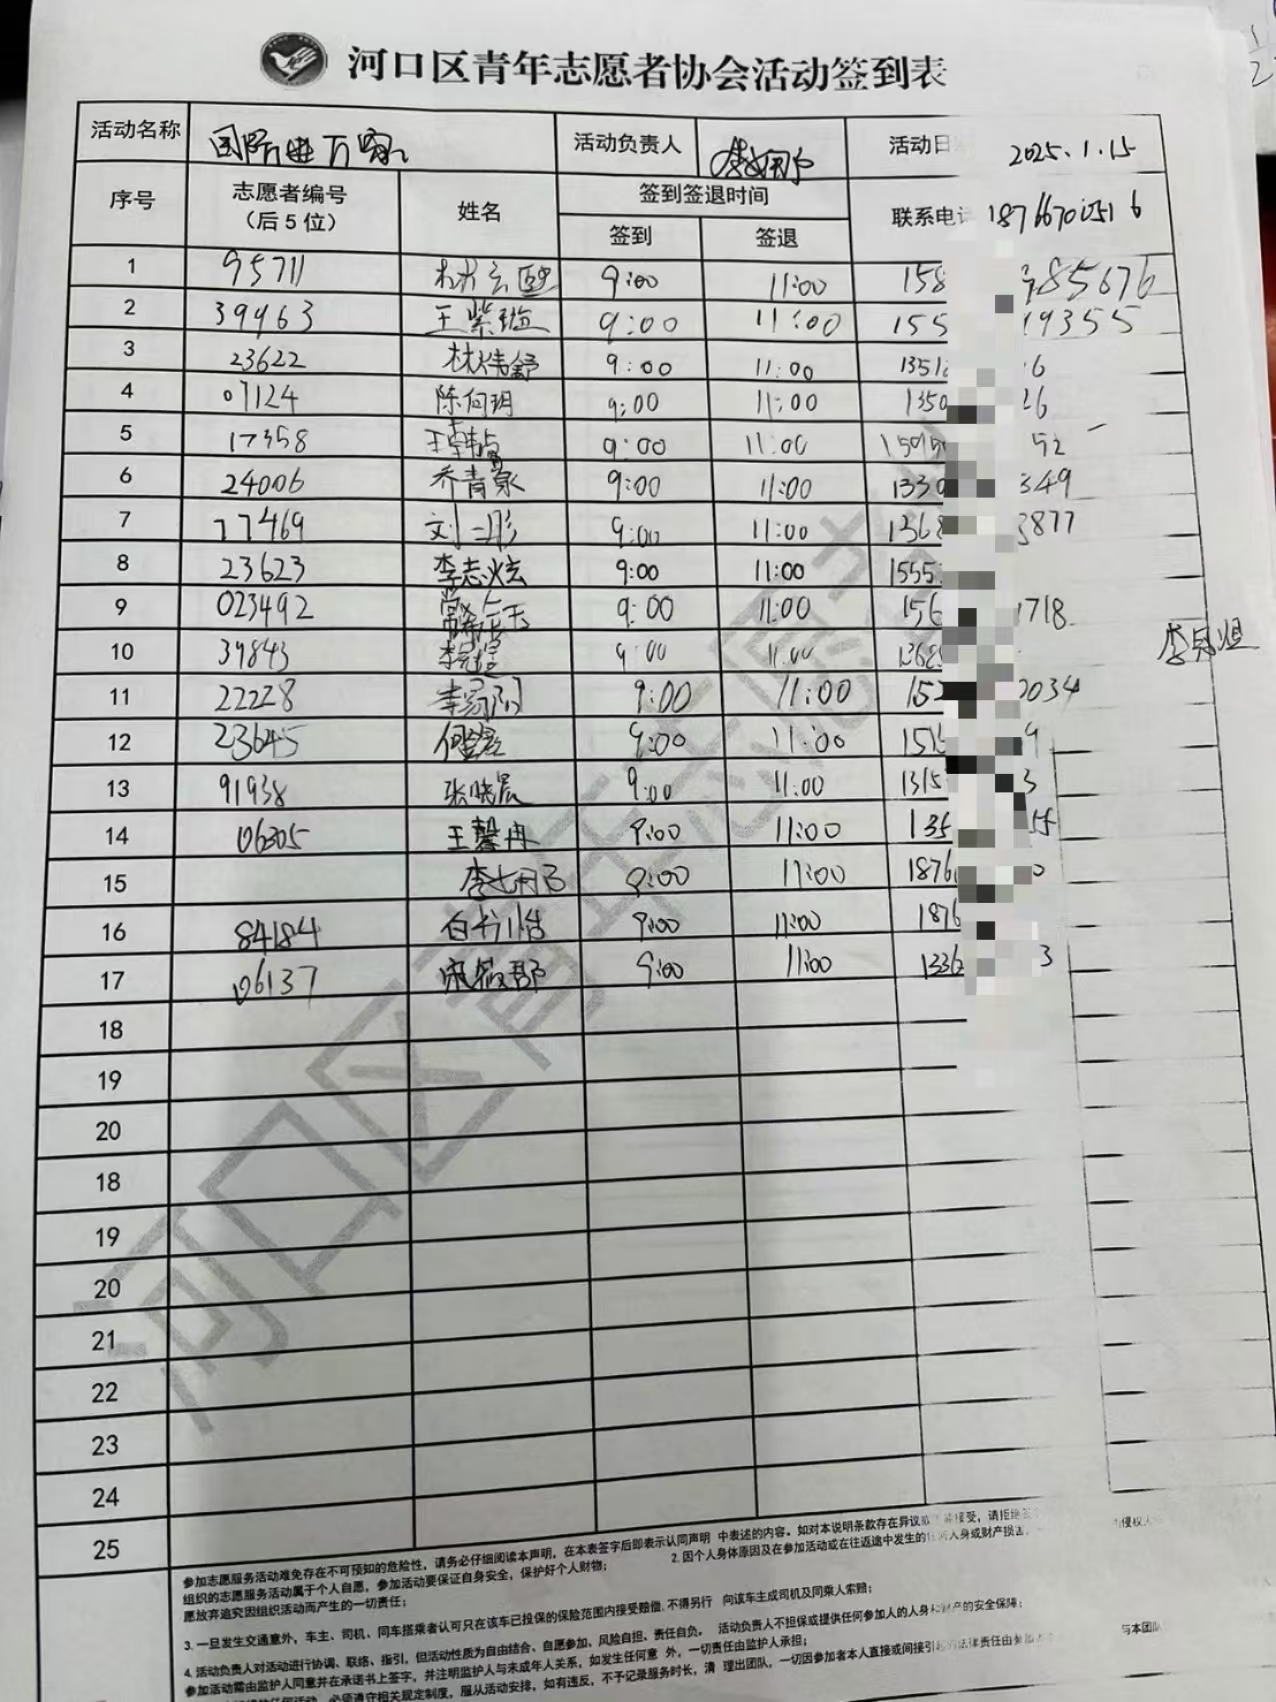 河口区青年志愿者协会活动签到表
活动名称 国防进万家 活动负责人 活动日 2025.1.15
序号 志愿者编号（后5位） 姓名 签到签退时间 联系电话 18766700516
签到 签退
1 95711 9:00 11:00 158 85676
2 39463 王紫璇 9:00 11:00 155 19355
3 23622 林炜舒 9:00 11:00 1351 6
4 07124 陈何玥 9:00 11:00 1350 26
5 17358 9:00 11:00 15095 52
6 24006 乔青泉 9:00 11:00 1330 349
7 77469 刘二彤 9:00 11:00 1368 3877
8 23623 李志炫 9:00 11:00 1555
9 023492 9:00 11:00 156 1718
10 39843 9:00 11:00 1368 李冠煊
11 22228 9:00 11:00 152 2034
12 23645 9:00 11:00 151 9
13 91938 张晓晨 9:00 11:00 1315 3
14 06305 王馨冉 9:00 11:00 135 55
15 9:00 11:00 1876 0
16 84184 白书恺 9:00 11:00 1876
17 06137 9:00 11:00 1336 3
18
19
20
18
19
20
21
22
23
24
25
参加志愿服务活动难免存在不可预知的危险性，请务必仔细阅读本声明，在本表签字后即表示认同声明 中表述的内容。如对本说明条款存在异议或 接受，请拒绝
组织的志愿服务活动属于个人自愿，参加活动要保证自身安全，保护好个人财物； 2.因个人身体原因及在参加活动或在往返途中发生的 人身或财产损害， 侵权人
愿放弃追究因组织活动而产生的一切责任；
3.一旦发生交通意外，车主、司机、同车搭乘者认可只在该车已投保的保险范围内接受赔偿,不得另行 向该车主或司机及同乘人索赔；
4.活动负责人对活动进行协调、联络、指引，但活动性质为自由结合、自愿参加、风险自担、责任自负。 活动负责人不担保或提供任何参加人的人身和财产的安全保障；
参加活动需由监护人同意并在承诺书上签字，并注明监护人与未成年人关系，如发生任何意 外，一切责任由监护人承担； 与本团队
必须遵守相关规定制度，服从活动安排，如有违反，不予记录服务时长，清 理出团队，一切因参加者本人直接或间接引起的法律责任由参加
河口区青年志愿者